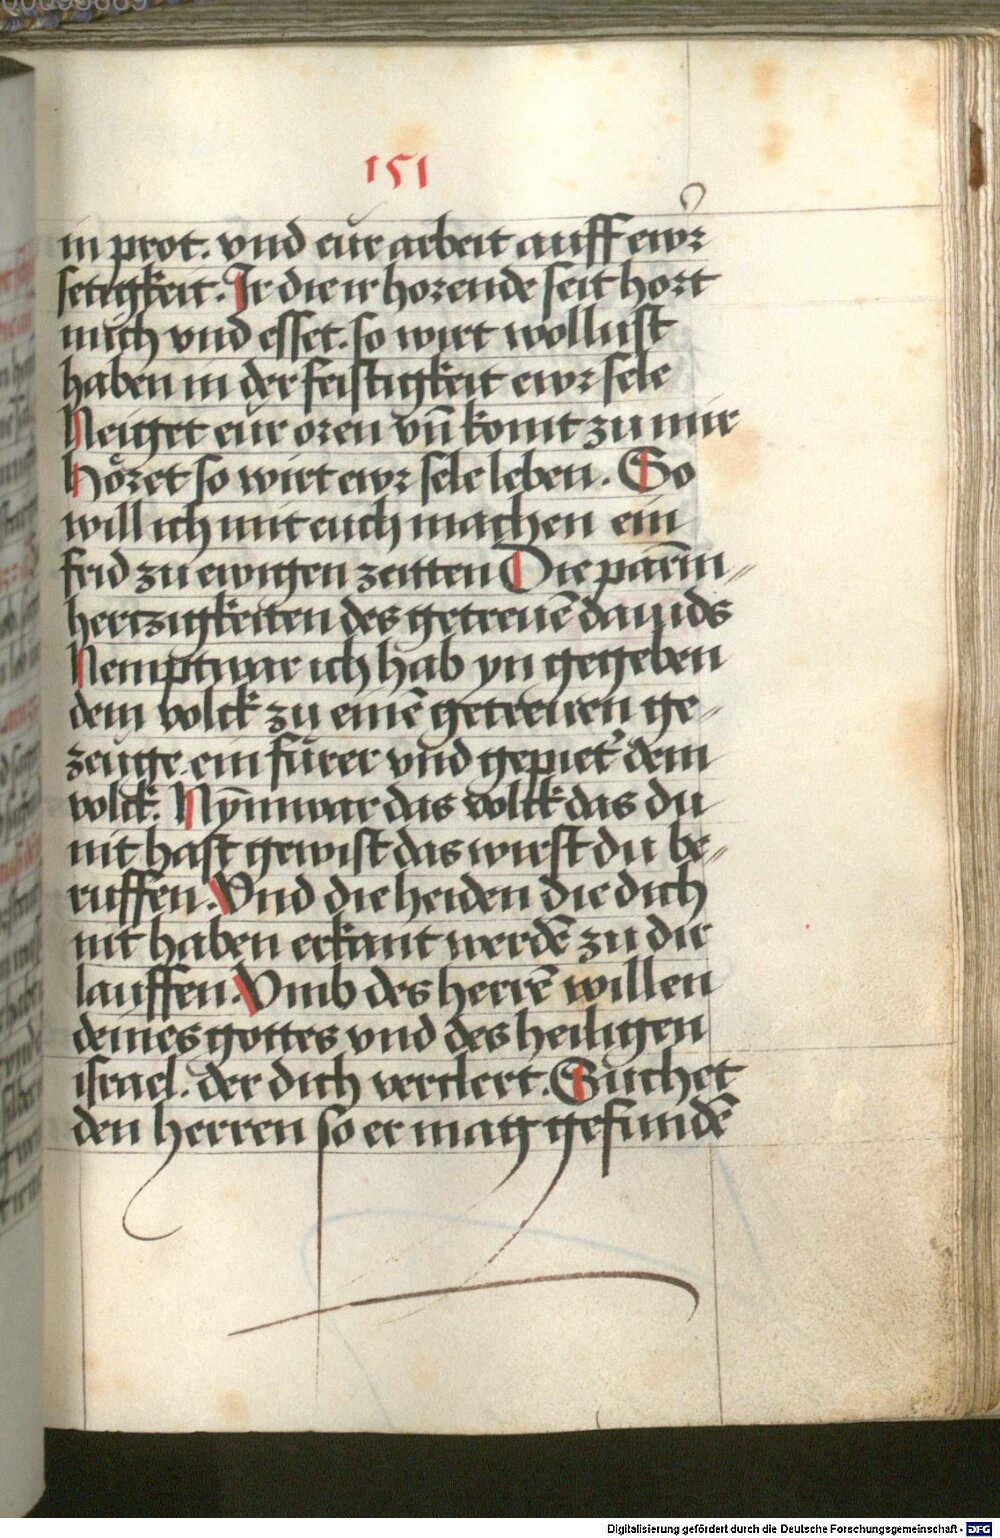 151
in prot. vnd eur arbeit auff ewr
setigkeit. Ir die ir horende seit hort
mich vnd esset. so wirt wollust
haben in der feistigkeit ewr sele
Neiget eur oren vn̄ komt zu mir
Hoͤret so wirt ewr sele leben. So
will ich mit euch machen ein
frid zu ewigen zeitten Die parm̄-
hertzigkeiten des getreuē dauids
Nempt war ich hab yn gegeben
dem volck zu einē getreuen ge-
zeuge. ein fürer vnd gepiet' dem
volck. Nȳm war das volck das du
nit hast gewist das wirst du be-
ruffen. Vnd die heiden die dich
nit haben erkant werdē zu dir
lauffen. Vmb des herrē willen
deines gottes vnd des heiligen
israel. der dich verclert. Suchet
den herren so er mag gefundē
Digitalisierung gefördert durch die Deutsche Forschungsgemeinschaft - DFG